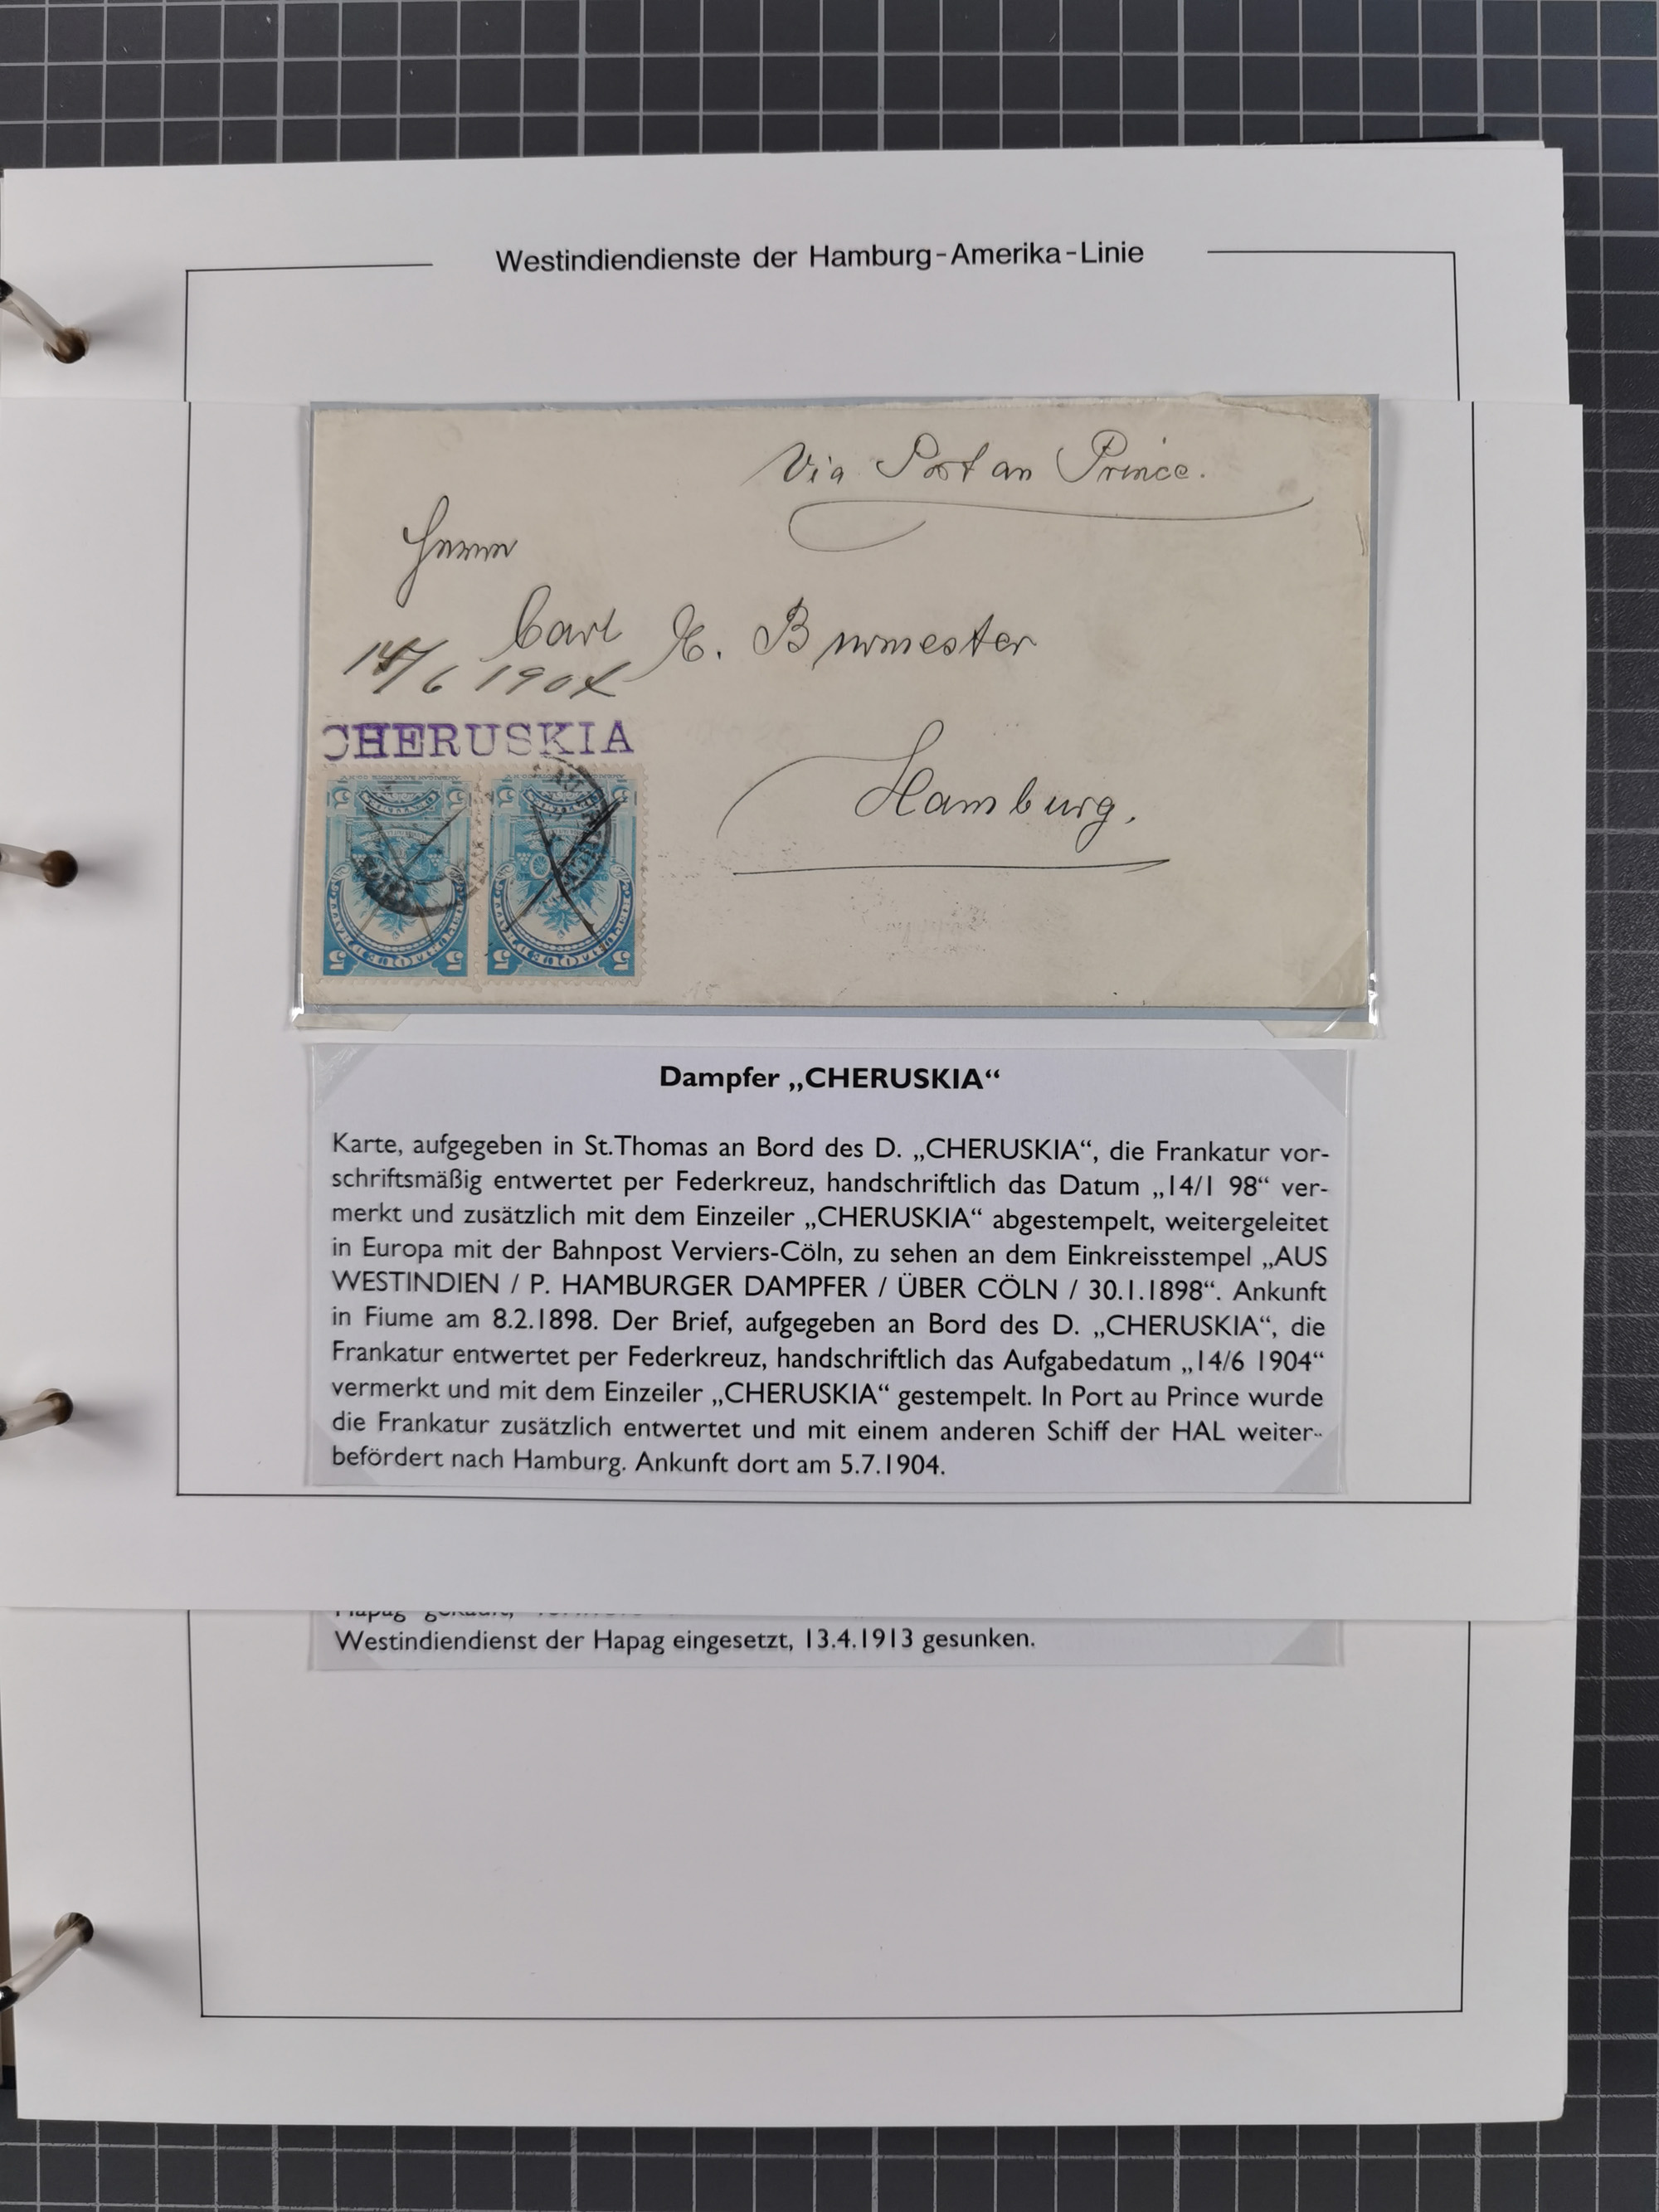 Westindiendienste der Hamburg-Amerika-Linie
Via Port au Prince.
Herrn
Carl E. Burmester
14/6 1904
CHERUSKIA
Hamburg.
5 5 5 5
5 5 5 5
Dampfer „CHERUSKIA“
Karte, aufgegeben in St.Thomas an Bord des D. „CHERUSKIA“, die Frankatur vor-
schriftsmäßig entwertet per Federkreuz, handschriftlich das Datum „14/1 98“ ver-
merkt und zusätzlich mit dem Einzeiler „CHERUSKIA“ abgestempelt, weitergeleitet
in Europa mit der Bahnpost Verviers-Cöln, zu sehen an dem Einkreisstempel „AUS
WESTINDIEN / P. HAMBURGER DAMPFER / ÜBER CÖLN / 30.1.1898“. Ankunft
in Fiume am 8.2.1898. Der Brief, aufgegeben an Bord des D. „CHERUSKIA“, die
Frankatur entwertet per Federkreuz, handschriftlich das Aufgabedatum „14/6 1904“
vermerkt und mit dem Einzeiler „CHERUSKIA“ gestempelt. In Port au Prince wurde
die Frankatur zusätzlich entwertet und mit einem anderen Schiff der HAL weiter-
befördert nach Hamburg. Ankunft dort am 5.7.1904.
Hapag gekauft,
Westindiendienst der Hapag eingesetzt, 13.4.1913 gesunken.